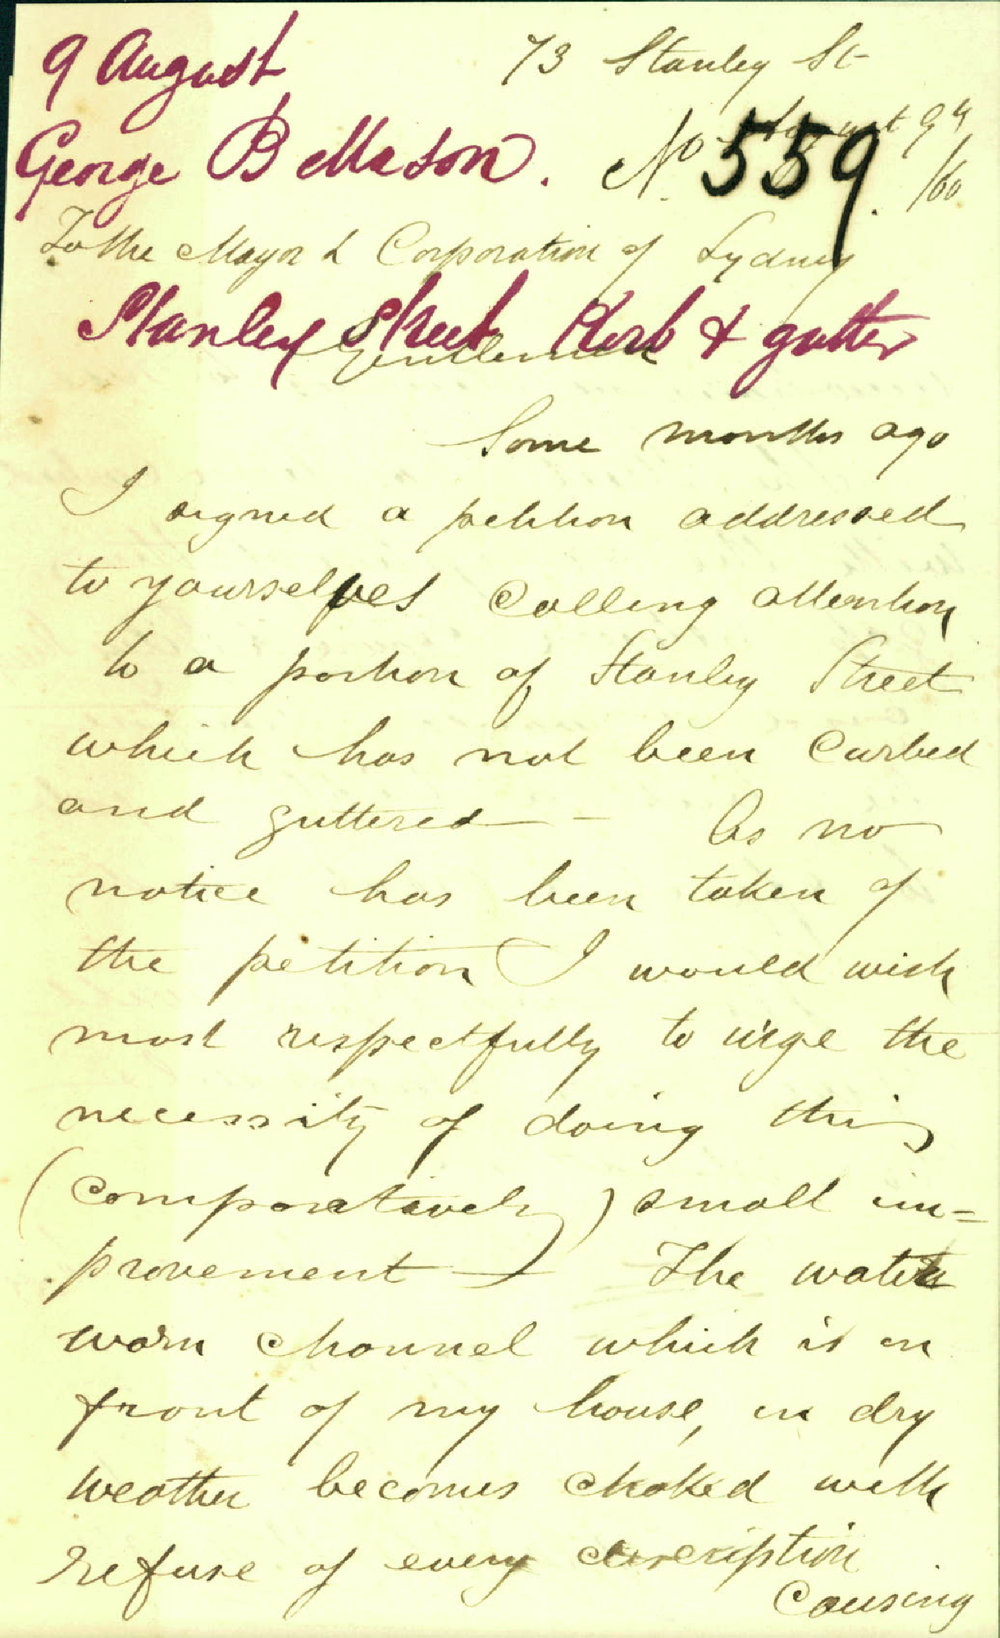 9 August
73 Stanley St
August 9th
George B Mason.
No. 559.
/60
To the Mayor & Corporation of Sydney
Stanley Street Kerb & gutter
Gentlemen
Some months ago
I signed a petition addressed
to yourselves calling attention
to a portion of Stanley Street
which has not been curbed
and guttered — As no
notice has been taken of
the petition I would wish
most respectfully to urge the
necessity of doing this
(comparatively) small im=
provement — The water
worn channel which is in
front of my house, in dry
weather becomes choked with
refuse of every description
causing